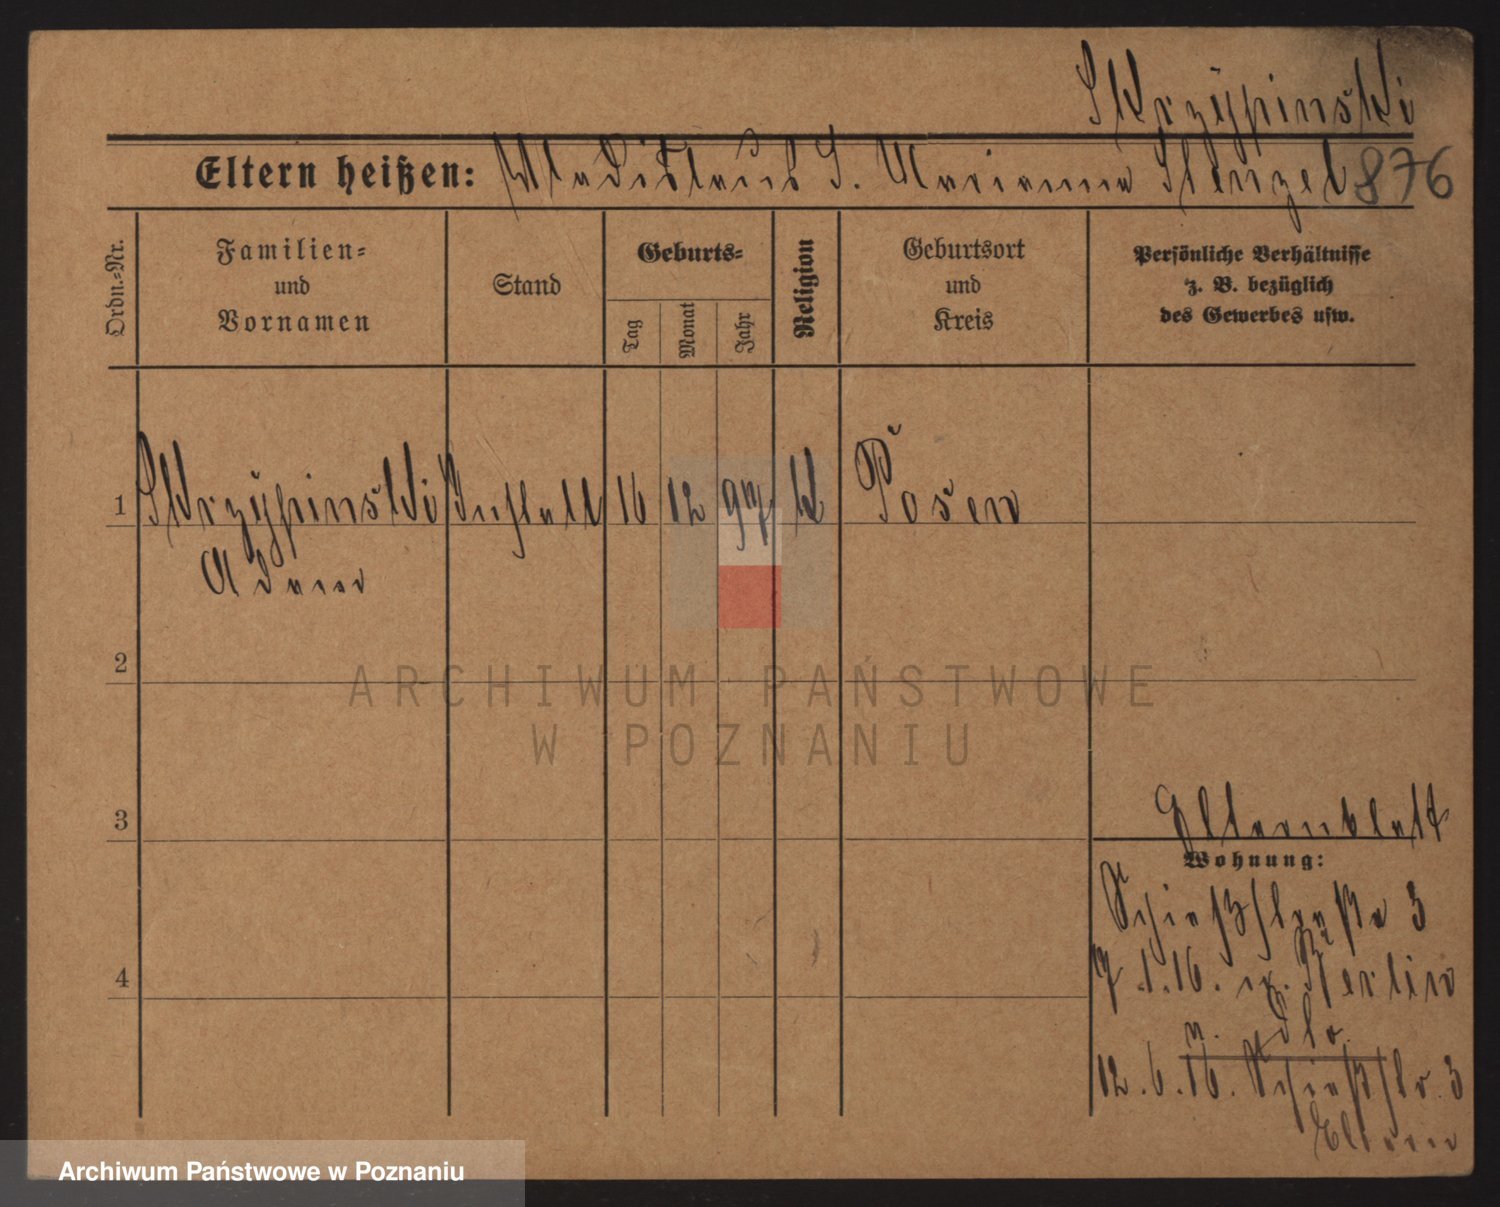 Skrzypinski
Eltern heißen: Wladislaus S. Marianna Stenzel 876
Ordn.=Nr.
Familien=
und
Vornamen
Stand
Geburts=
Tag
Monat
Jahr
Religion
Geburtsort
und
Kreis
Persönliche Verhältnisse
z. B. bezüglich
des Gewerbes usw.
1 Skrzypinski 16 12 97 k Posen
Adam
2
ARCHIWUM PAŃSTWOWE
W POZNANIU
3
Elternblatt
Wohnung:
Schießstraße 3
4
7.1.16. n. Berlin
12.6.16. Schießstr. 3
Eltern
Archiwum Państwowe w Poznaniu